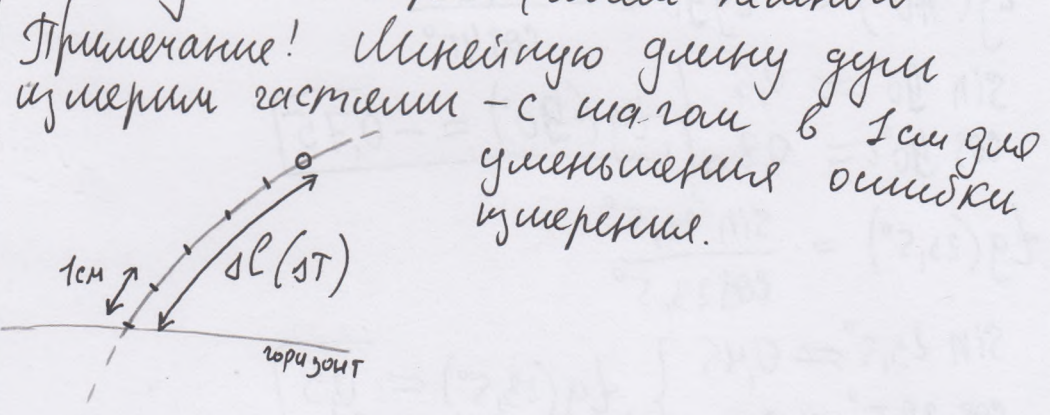 Примечание! Линейную длину дуги
измерим частями – с шагом в 1 см для
уменьшения ошибки
измерения.
1см
Δl (ΔT)
горизонт